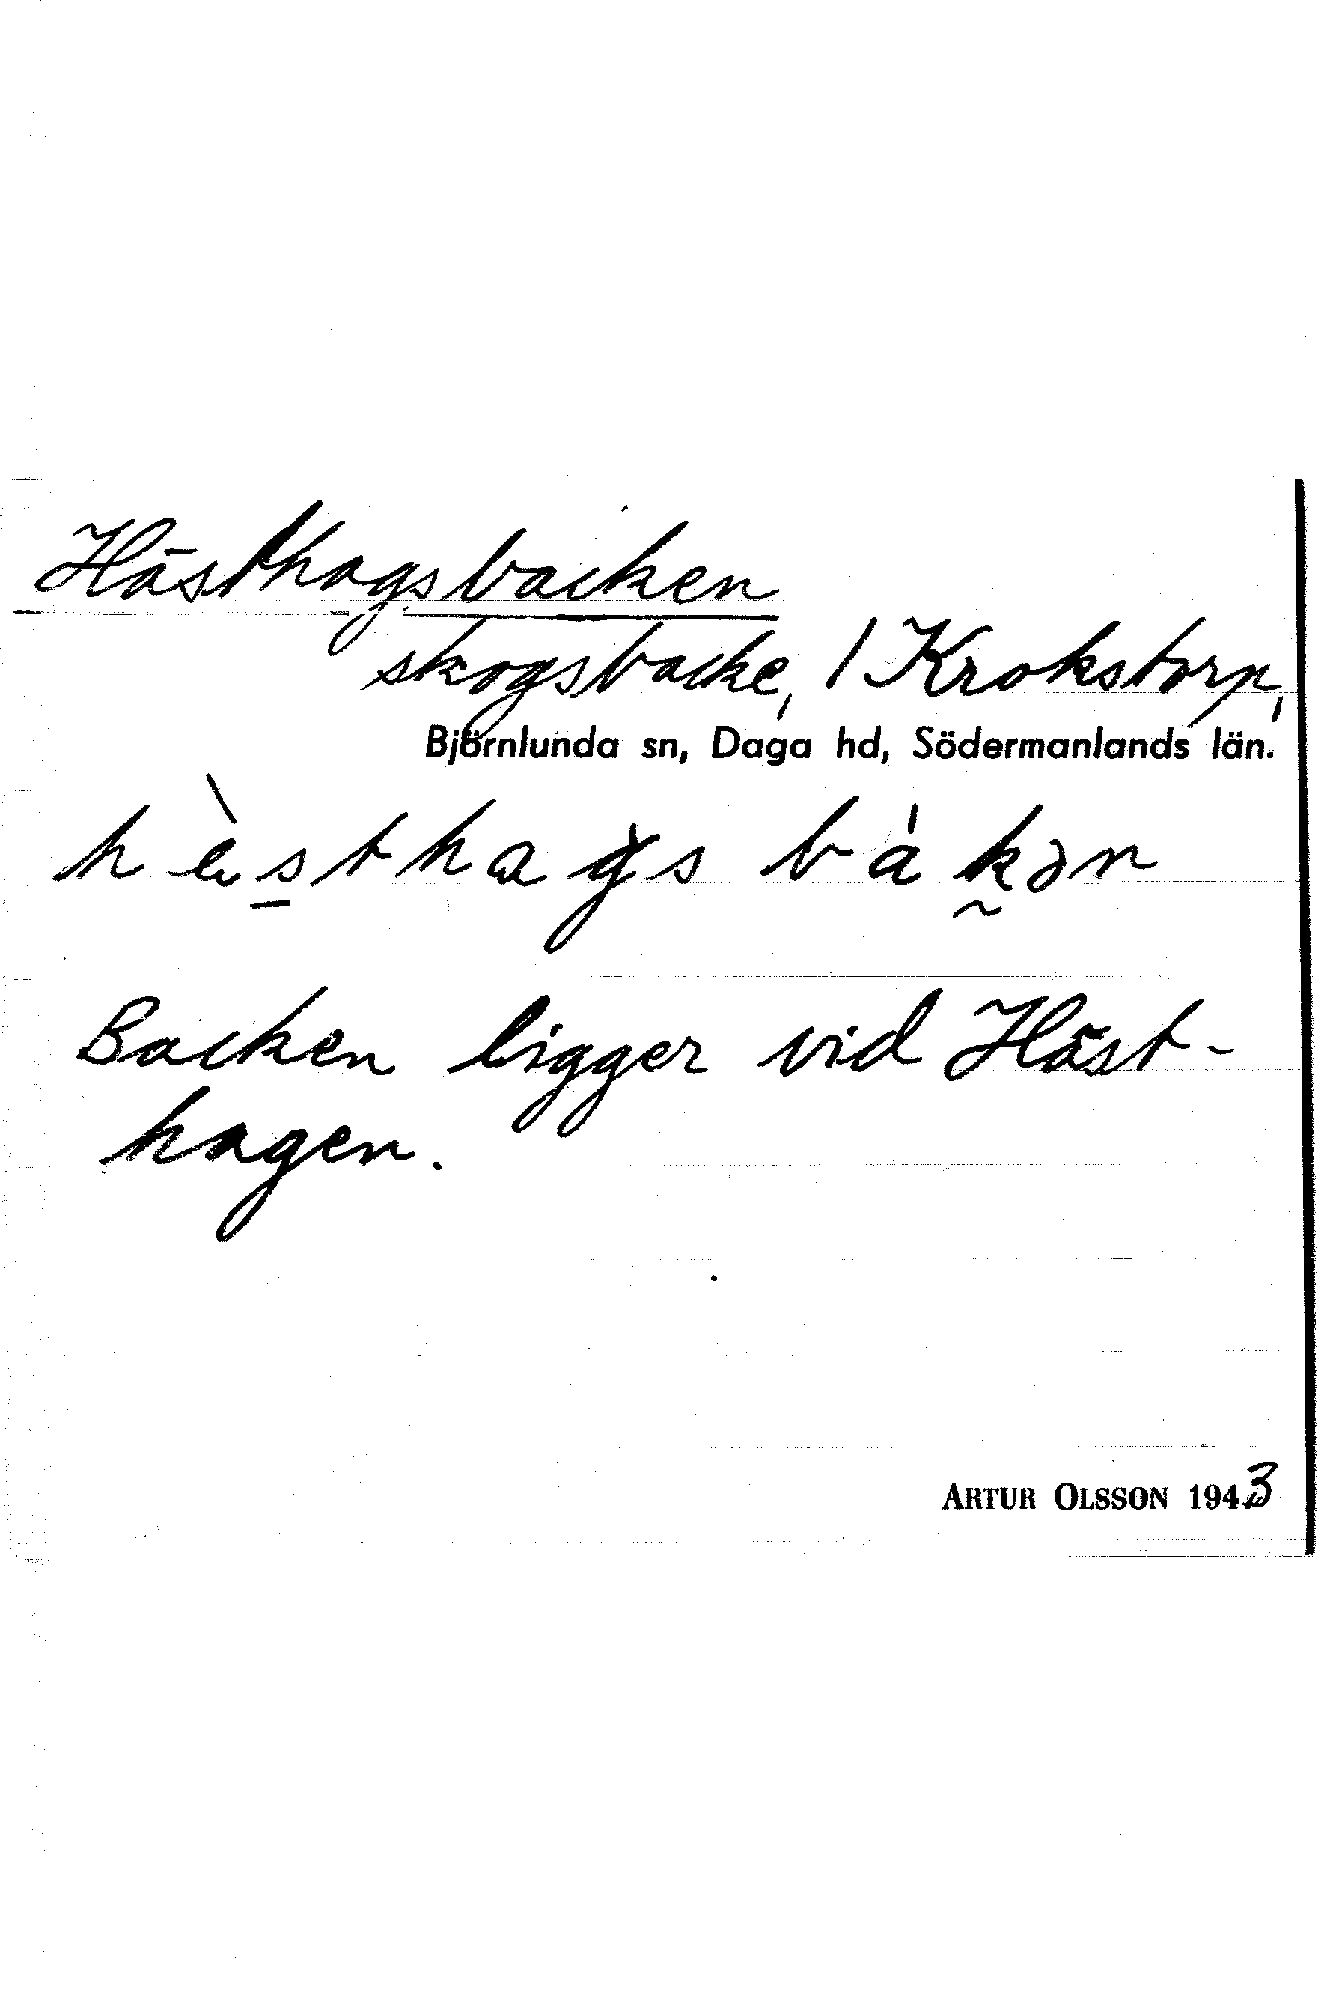 Hästhagsbacken
skogsbacke, / Krokstorp,
Björnlunda sn, Daga hd, Södermanlands län.
hèsthags bákən
Backen ligger vid Häst-
hagen.
ARTUR OLSSON 1943